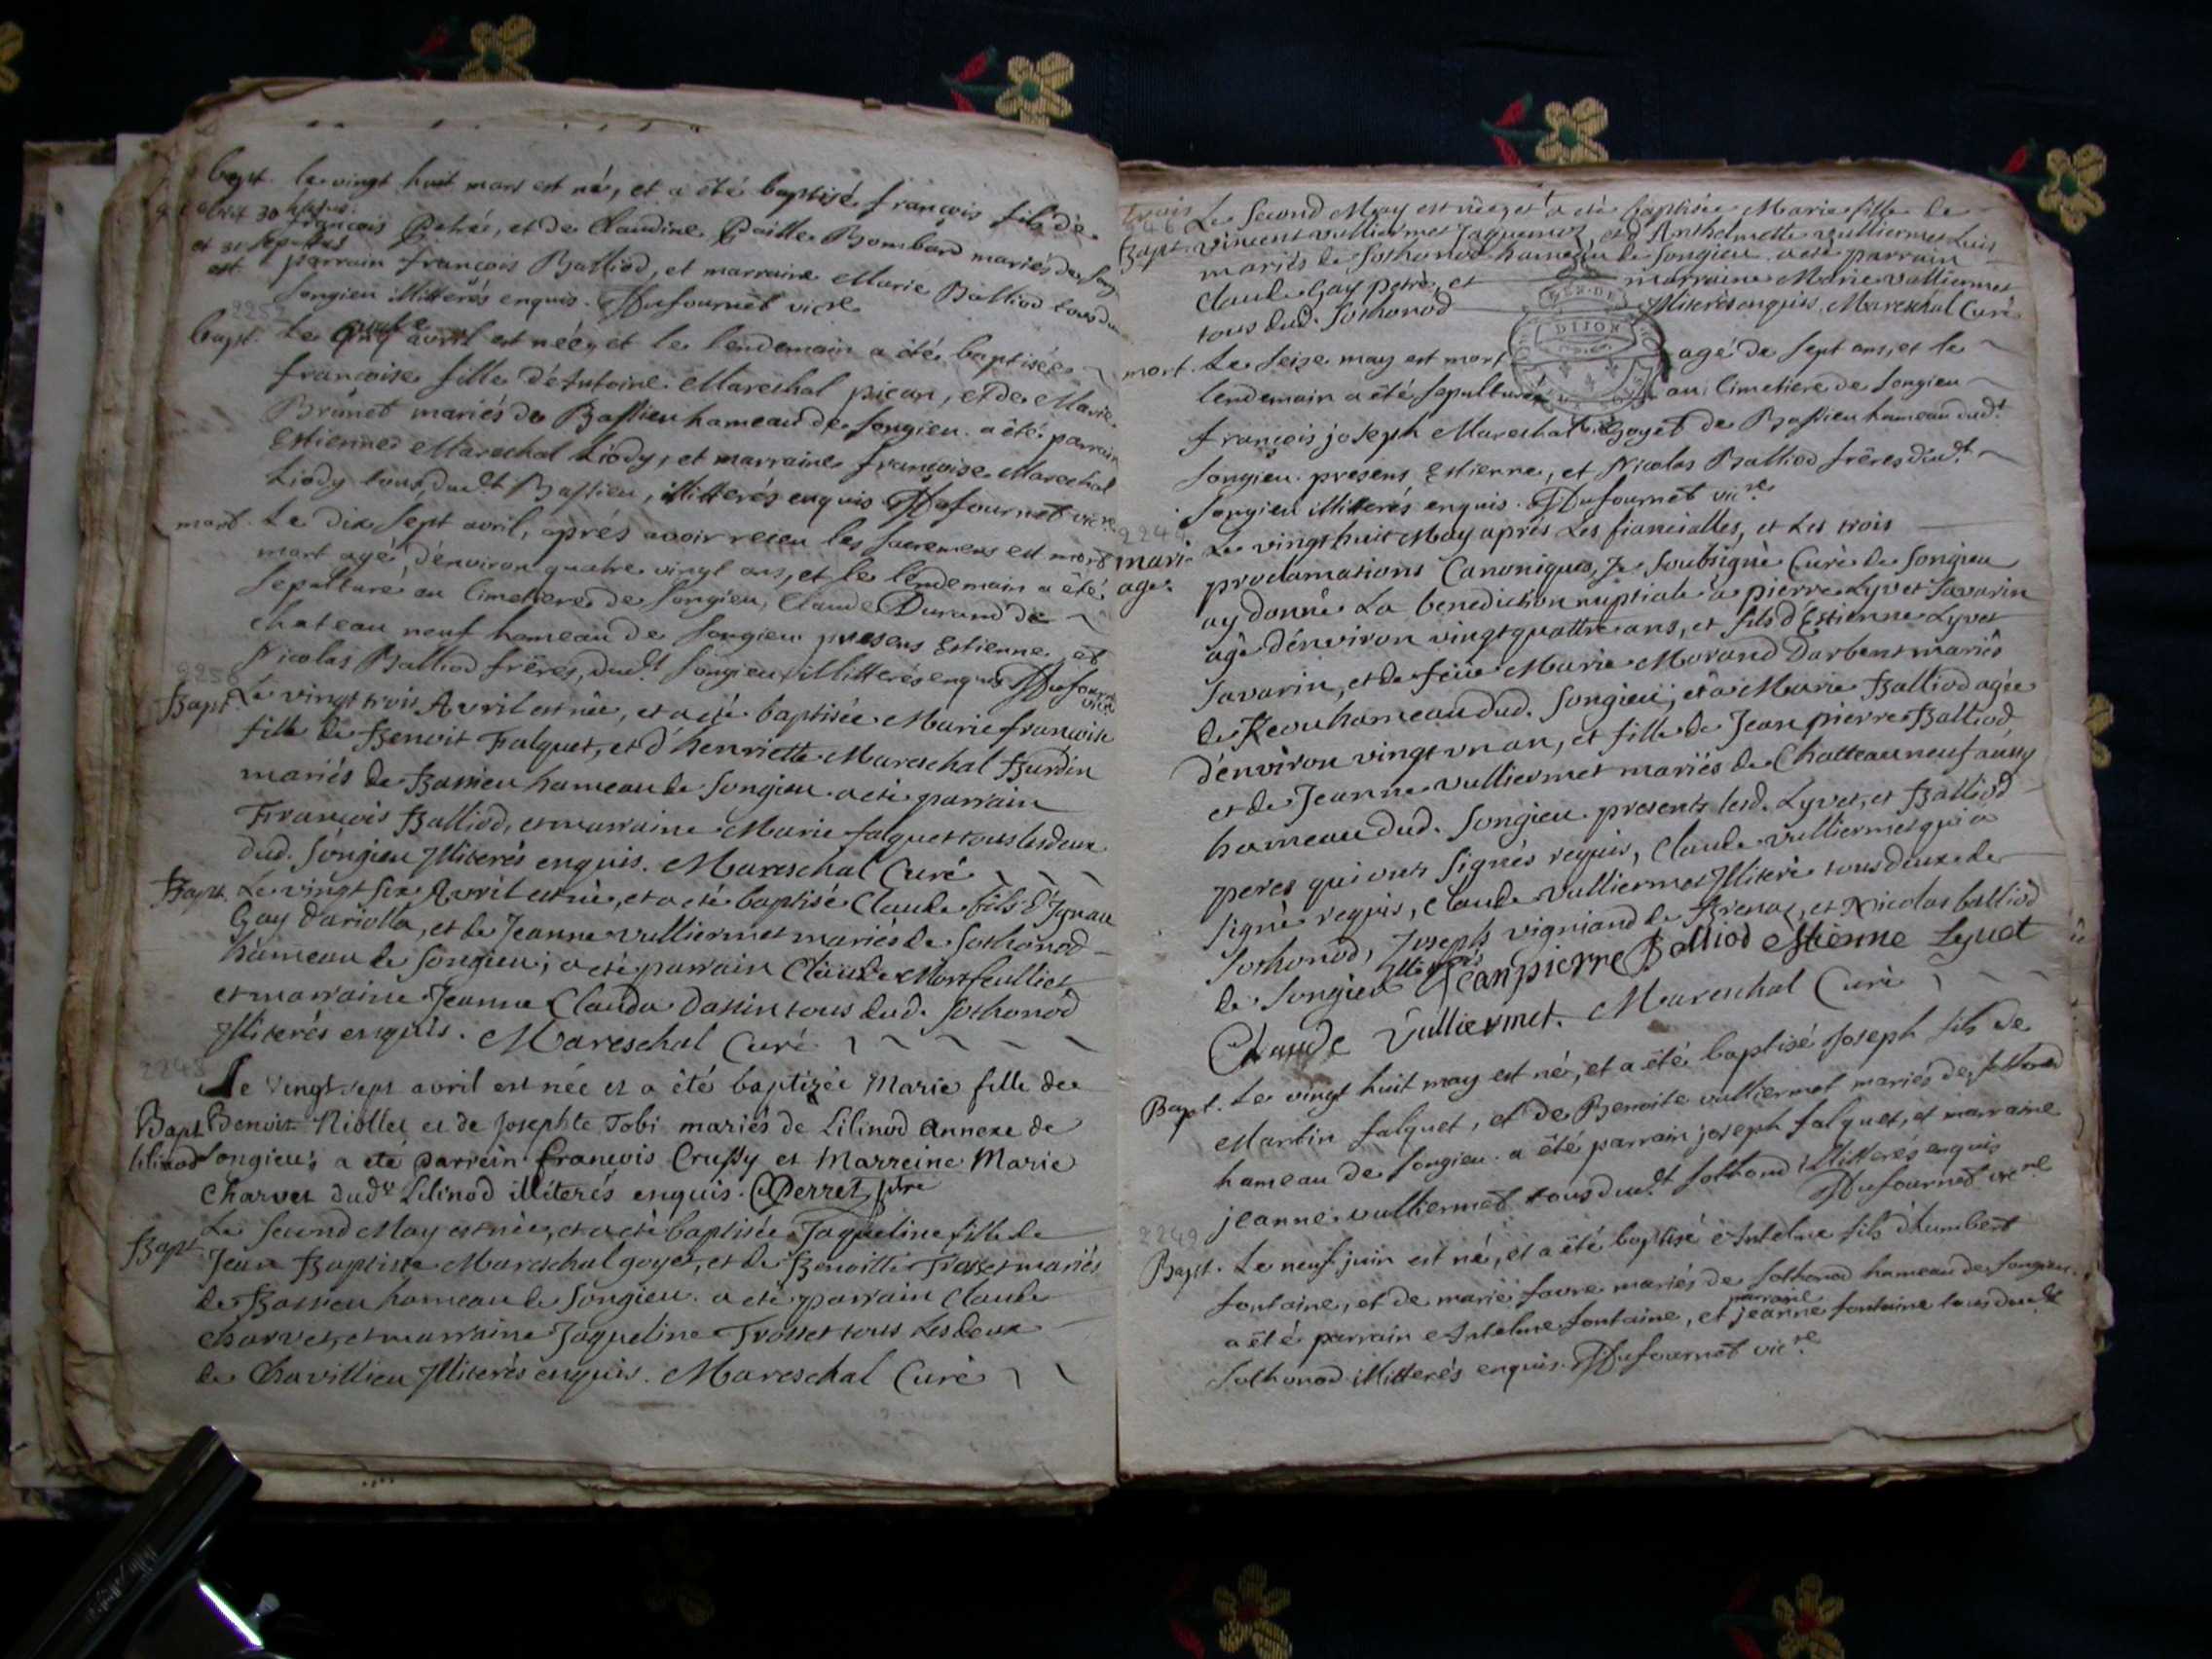 bapt. le vingt huit mars est né, et a été baptisé françois fils de
obiit 30 hujus.
et 31 sepultus
est
françois Petré, et de Claudine Paille Bombard mariés de Song
parrain françois Balliod, et marraine Marie Balliod tous du
Songieu illitterés enquis. Dufournet vic.re
2257
bapt. Le avril est néé, et le lendemain a été baptisée
francoise fille d'Antoine Mareschal pican, et de Marie
Brunet mariés de Bassieu hameau de Songieu. a été parrain
Estienne Mareschal Liody, et marraine françoise Mareschal
Liody tous dud.t Bassieu, illitterés enquis Dufournet vic.re
mort. Le dix sept avril, aprés avoir receu les sacremens est mort
mort agé d'environ quatre vingt ans, et le lendemain a été
sepulturé au Cimetiere de Songieu, Claude Durand de
chateau neuf hameau de Songieu presens Estienne, et
Nicolas Balliod frères, dud.t Songieu illitterés enquis Dufournet
vic.re
Bapt. Le vingt trois Avril est née, et a été baptisée Marie francoise
fille de Benoit Falquet, et d'henriette Mareschal Burdin
mariés de Bassieu hameau de Songieu a eté parrain
François Balliod, et marraine Marie falquet tous les deux
dud. Songieu Illiterés enquis. Mareschal Curé
Bapt. Le vingt six Avril est né, et a eté baptisé Claude fils d'Ignace
Gay Dariolla, et de Jeanne vulliermet mariés de Sothonod
hameau de Songieu; a eté parrain Claude Montfeulliet
et marraine Jeanne Clauda Dassin tous dud. Sothonod
Illiterés enquis. Mareschal Curé
2248
Le vingt sept avril est née et a été baptizée Marie fille de
Bapt Benoit Niollet et de Josephte Tobi mariés de Lilinod annexe de
lilinod Songieu; a eté parrein François Crussy et Marreine Marie
Charvet dud.t Lilinod illiterés enquis. Perret ptre
Bapt. Le Second May est née, et a eté baptisée Jaqueline fille de
Jean Baptiste Mareschal goyet, et de Benoitte Trosset mariés
de Bassieu hameau de Songieu. a eté parrain Claude
Charvet, et marraine Jaqueline Trosset tous Les deux
de Chavillieu Illiterés enquis. Mareschal Curé
trois
Le Second May est née, et a eté baptisée Marie fille de
Bapt. vincent vulliermet Jaquemoz, et d'Anthelmette vulliermet Luis
mariés de Sothonod hameau de Songieu. a eté parrain
Claude Gay petré, et marraine Marie vulliermet
tous dud. Sothonod Illiterés enquis. Mareschal Curé
GEN. DE
DIJON
mort. Le seize may est mort agé de sept ans, et le
lendemain a été sepulturé au Cimetiere de Songieu
françois joseph Mareschal Goyet de Bassieu hameau dud.t
Songieu. presens Estienne, et Nicolas Balliod frères dud.t
Songieu illitterés enquis. Dufournet vic.re
mari-
age.
Le vingt huit May aprés Les fiancialles, et Les trois
proclamations Canoniques, Je soubsigné Curé de Songieu
ay donné La benediction nuptiale à pierre Lyvet Savarin
agé d'environ vingt quattre ans, et fils d'Estienne Lyvet
Savarin, et de feüe Marie Morand Darbent mariés
de Reou hameau dud. Songieu; et à Marie Balliod agée
d'environ vingt un an, et fille de Jean pierre Balliod,
et de Jeanne vulliermet mariés de Chatteauneuf aussy
hameau dud. Songieu presents lesd. Lyvet, et Balliod
peres qui ont signés requis, Claude vulliermet qui a
signé requis, Claude vulliermet Illiteré tous deux de
Sothonod, Joseph vigniand de Brenaz, et Nicolas balliod
de Songieu Illiterés Jean pierre Balliod Estienne Lyuet
Claude Vulliermet. Mareschal Curé
Bapt. Le vingt huit may est né, et a été baptisé Joseph fils de
Martin falquet, et de Benoite vulliermet mariés de Sothonod
hameau de Songieu. a été parrain joseph falquet, et marraine
jeanne vulliermet tous dud.t Sothonod illitterés enquis
Dufournet vic.re
2249
Bapt. Le neuf juin est né, et a été baptisé Antelme fils d'humbert
fontaine, et de marie favre mariés de Sothonod hameau de Songieu.
a été parrain Antelme fontaine, et marraine jeanne fontaine tous dud.t
Sothonod illitterés enquis. Dufournet vic.re